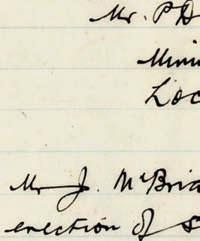 Mr. P D
Mini
Loc
Mr J. McBria
erection of s